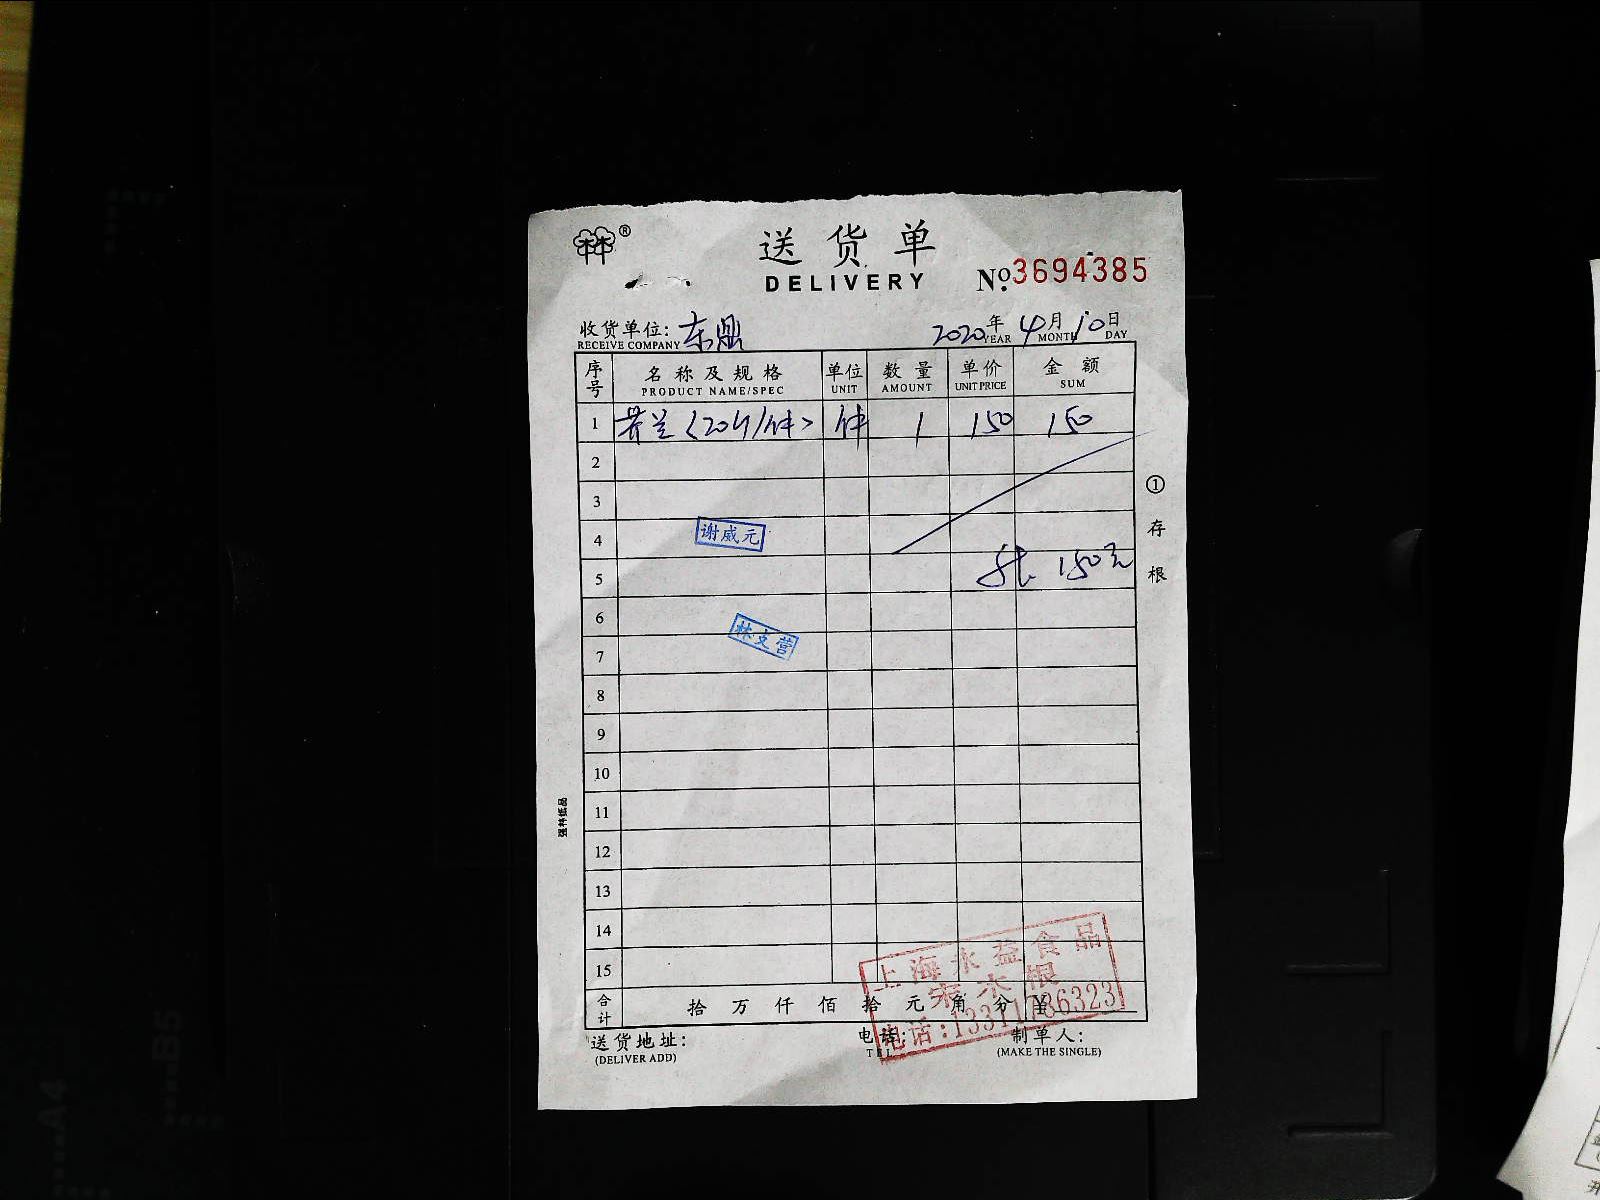 林®
送货单
DELIVERY
No.3694385
收货单位: 东鼎 2020年4月10日
RECEIVE COMPANY YEAR MONTH DAY
序号 名称及规格 单位 数量 单价 金额
PRODUCT NAME/SPEC UNIT AMOUNT UNIT PRICE SUM
1 芥兰(20斤/件) 件 1 150 150
2
3
4 谢威元
5 150元
6
7
8
9
10
11
12
13
14
15
合计 拾万仟佰拾元角分 ¥
送货地址: 电话: 制单人:
(DELIVER ADD) TEL (MAKE THE SINGLE)
①存根
强林纸品
上海永益食品
A4
B5